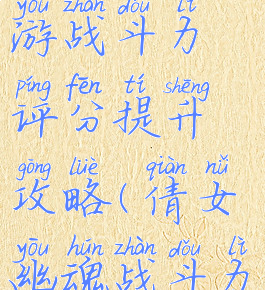 yóu zhàn dòu lì
游战斗力
píng fēn tí shēng
评分提升
gōng lüè qiàn nǚ
攻略(倩女
yōu hún zhàn dǒu lì
幽魂战斗力